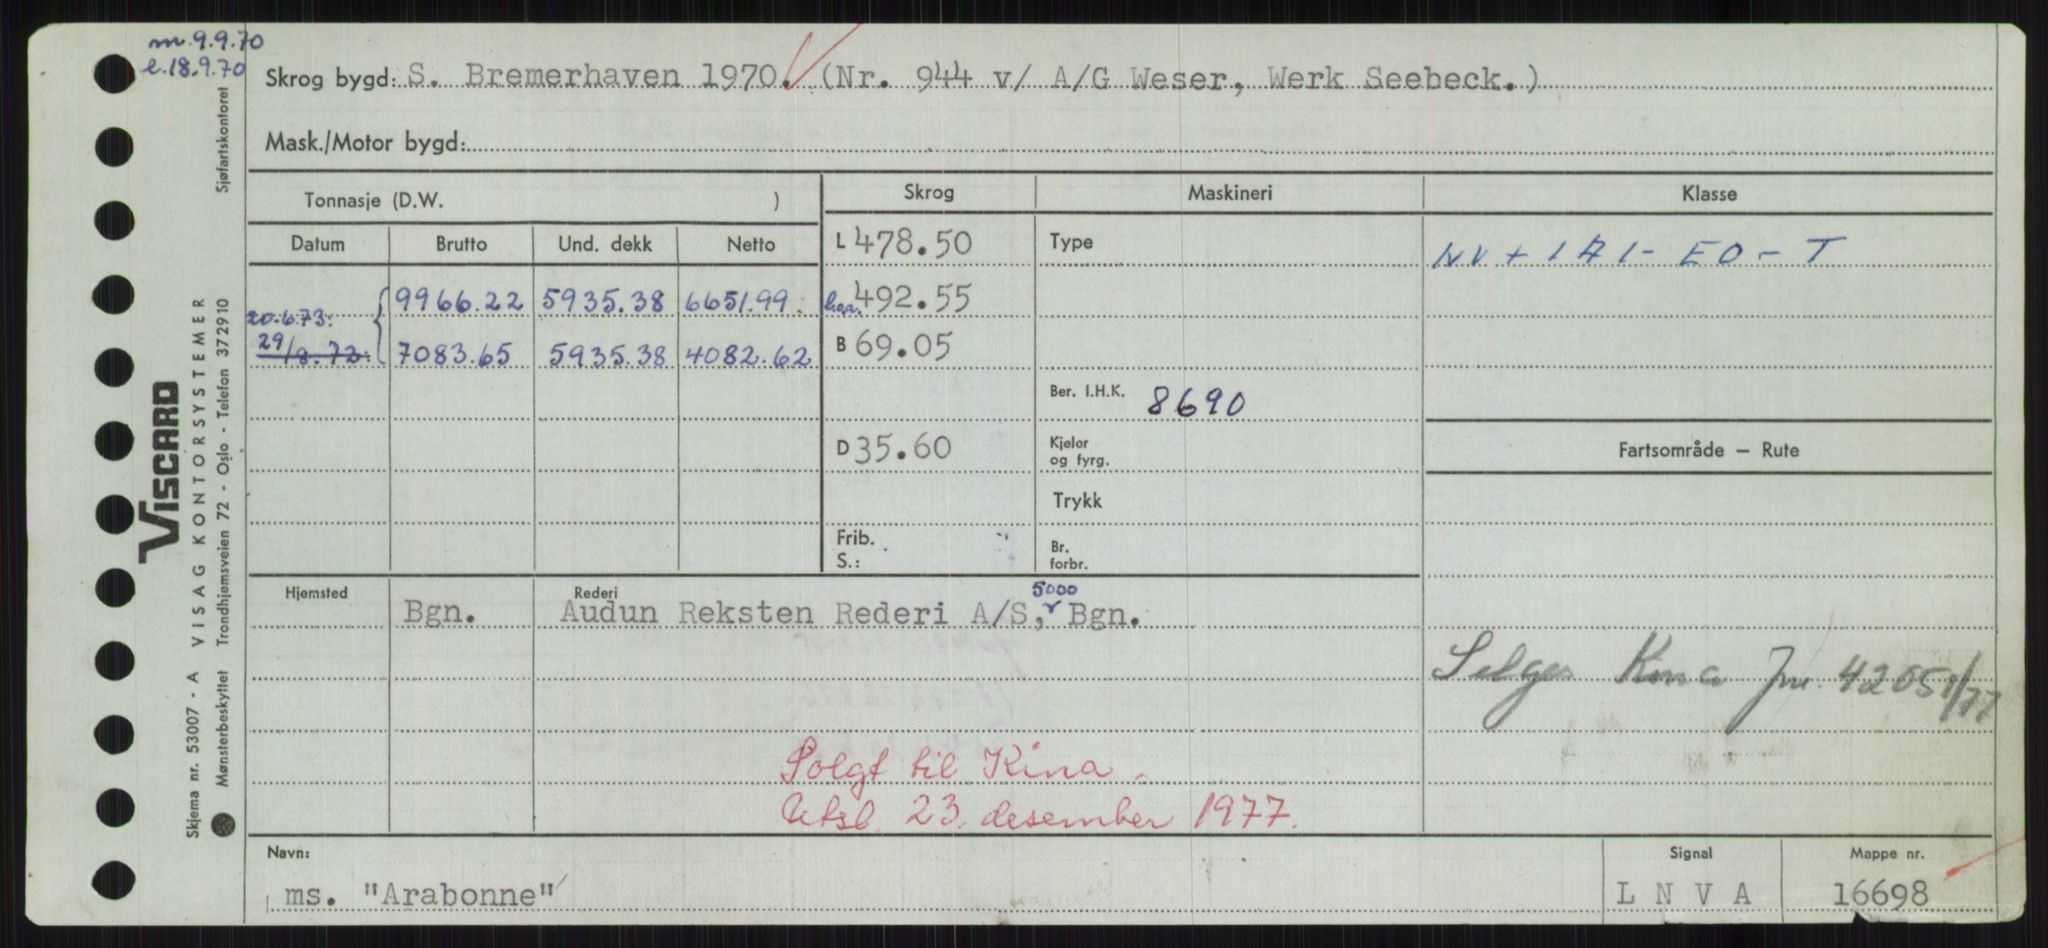 m. 9.9.70
l. 18.9.70
Skrog bygd: S. Bremerhaven 1970. (Nr. 944 v/ A/G Weser, Werk Seebeck.)
Mask./Motor bygd:
Tonnasje (D.W. )
Skrog
Maskineri
Klasse
Datum Brutto Und. dekk Netto
L 478.50
Type
NV + 1A1 - EO - T
20.6.73. 9966.22 5935.38 6651.99
l.o.a. 492.55
29/8.72. 7083.65 5935.38 4082.62
B 69.05
Ber. I.H.K. 8690
D 35.60
Kjelor
og fyrg.
Fartsområde – Rute
Trykk
Frib.
S.:
Br.
forbr.
Hjemsted
Rederi
5000
Bgn. Audun Reksten Rederi A/S, Bgn.
Selges Kina Jnr. 42051/77
Solgt til Kina.
Utsl. 23. desember 1977.
Navn:
ms. "Arabonne"
Signal
L N V A
Mappe nr.
16698
VISCARD
Skjema nr. 53007 - A VISAG KONTORSYSTEMER
Mønsterbeskyttet Trondhjemsveien 72 - Oslo - Telefon 372910 Sjøfartskontoret